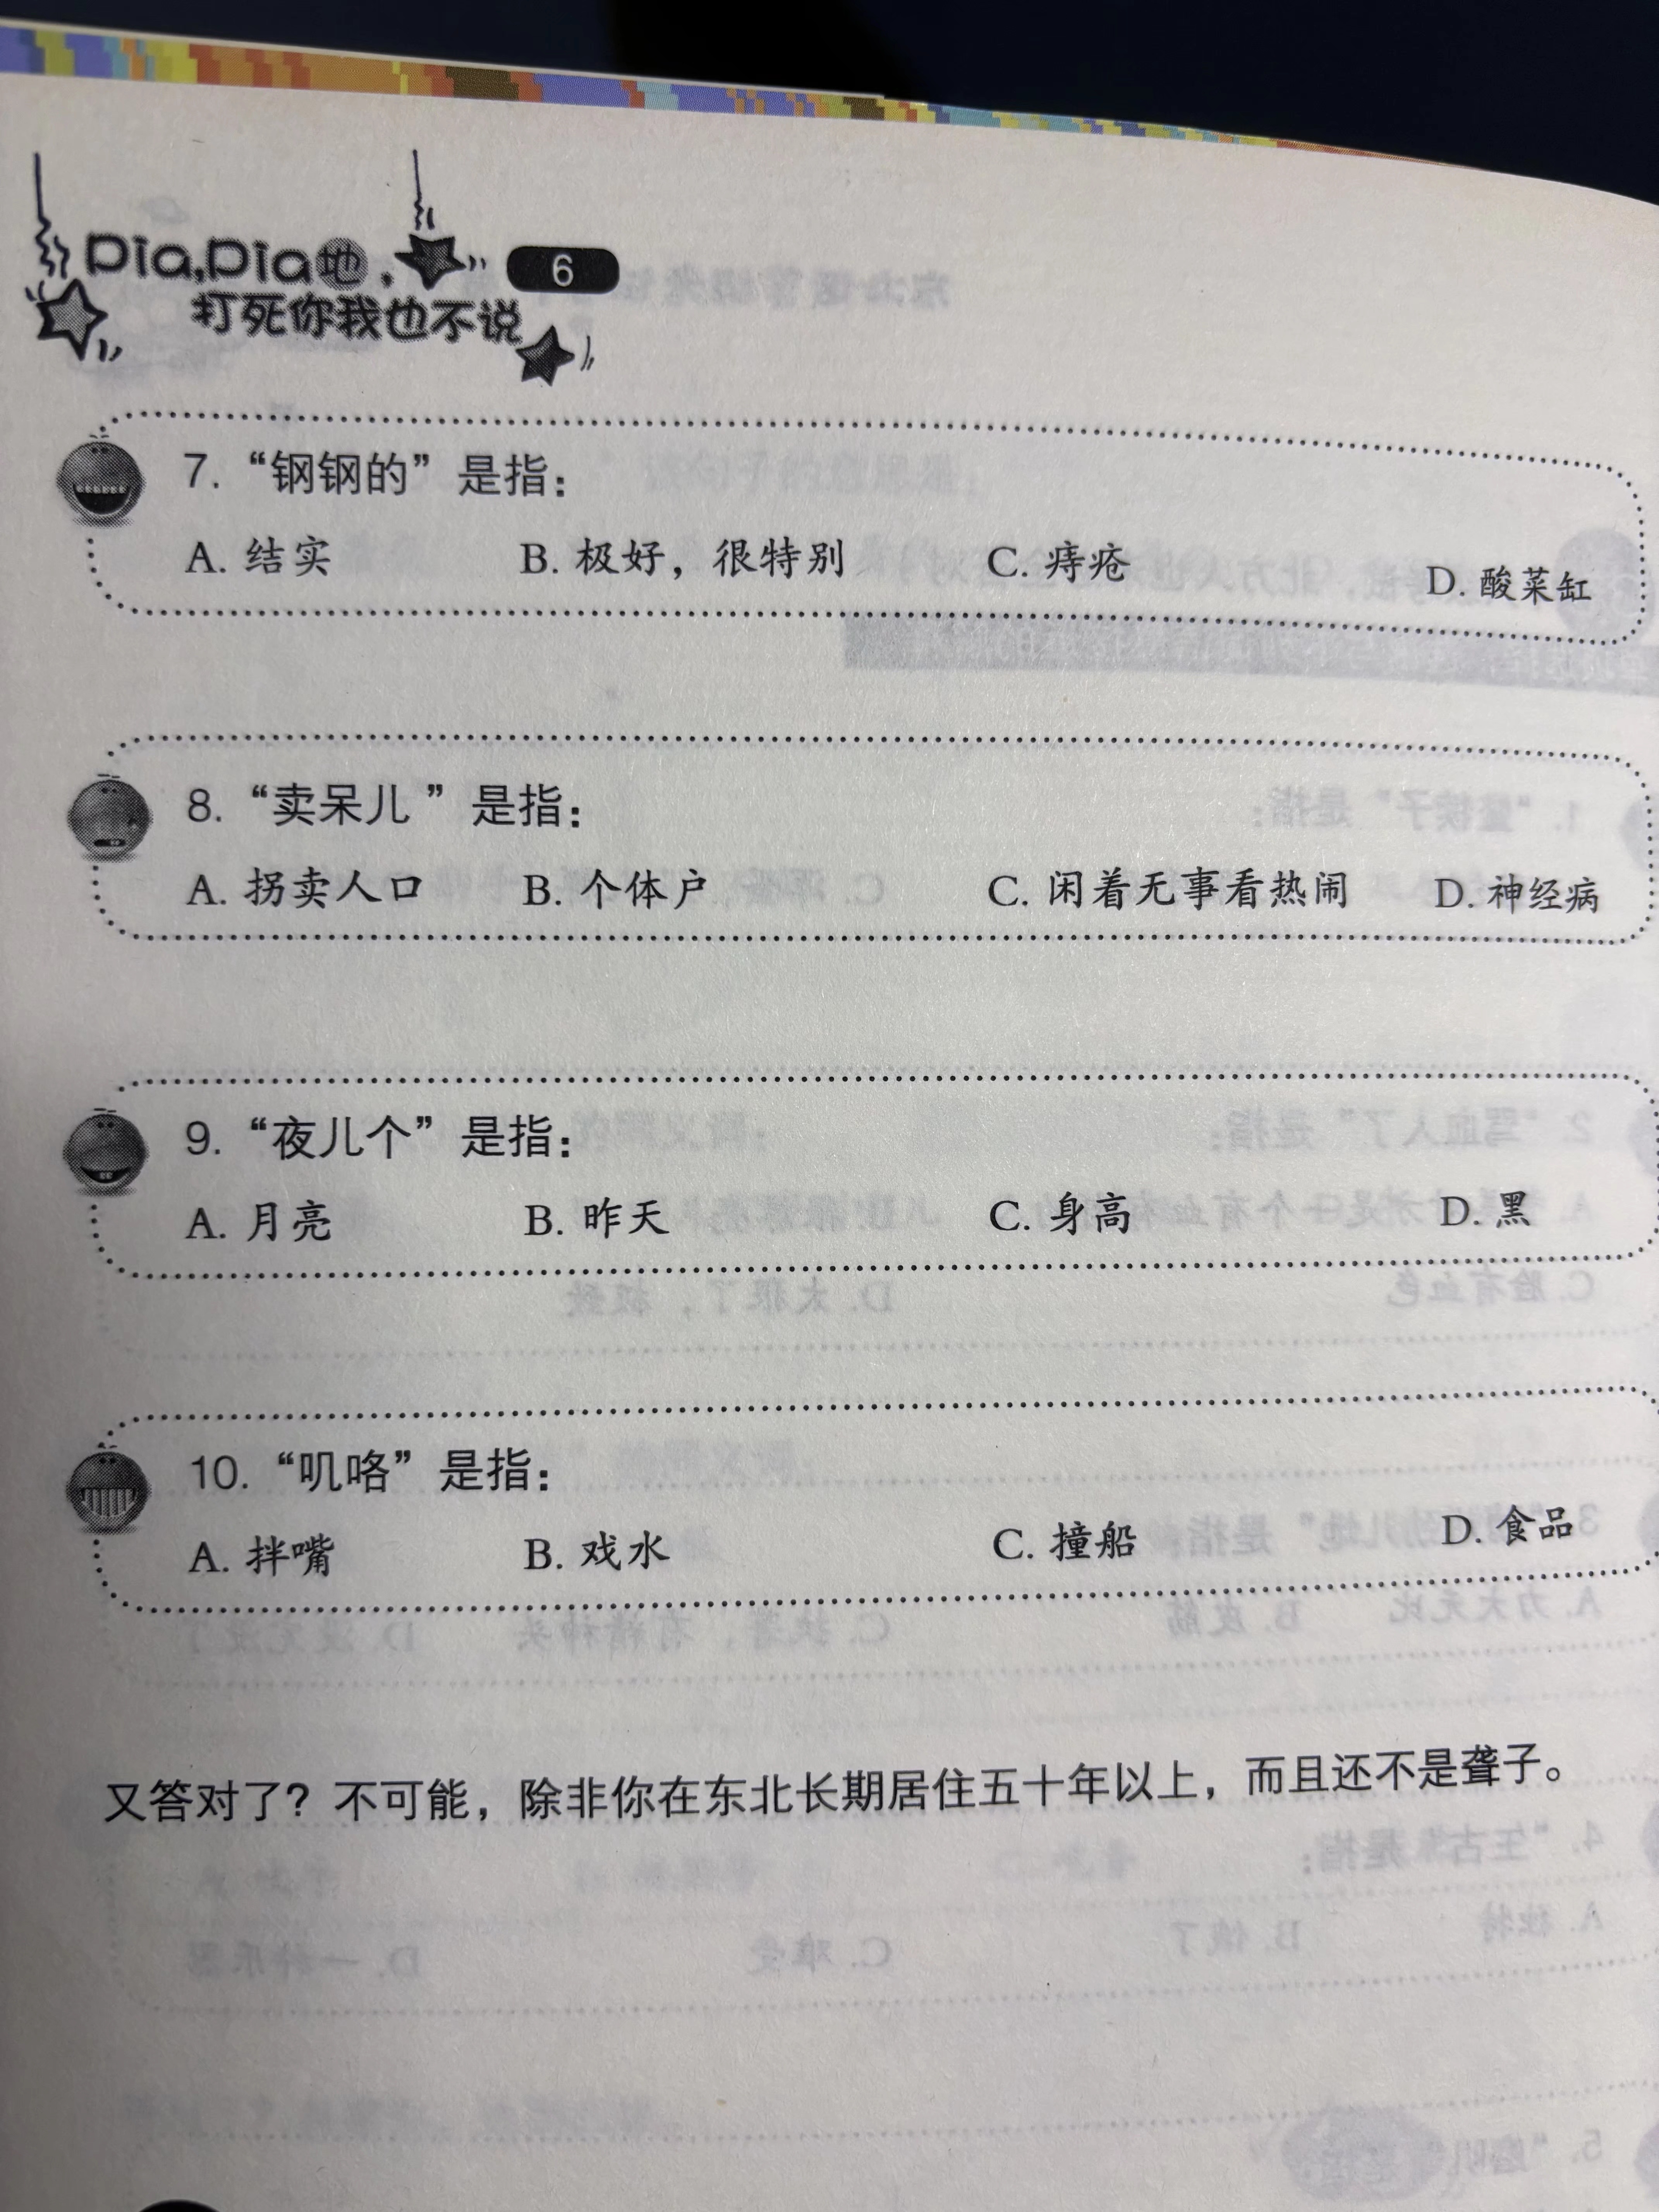 Dia,Dia地，
打死你我也不说
6
7. “钢钢的”是指：
A. 结实 B. 极好，很特别 C. 痔疮 D. 酸菜缸
8. “卖呆儿 ”是指：
A. 拐卖人口 B. 个体户 C. 闲着无事看热闹 D. 神经病
9. “夜儿个”是指：
A. 月亮 B. 昨天 C. 身高 D. 黑
10. “叽咯”是指：
A. 拌嘴 B. 戏水 C. 撞船 D. 食品
又答对了？不可能，除非你在东北长期居住五十年以上，而且还不是聋子。